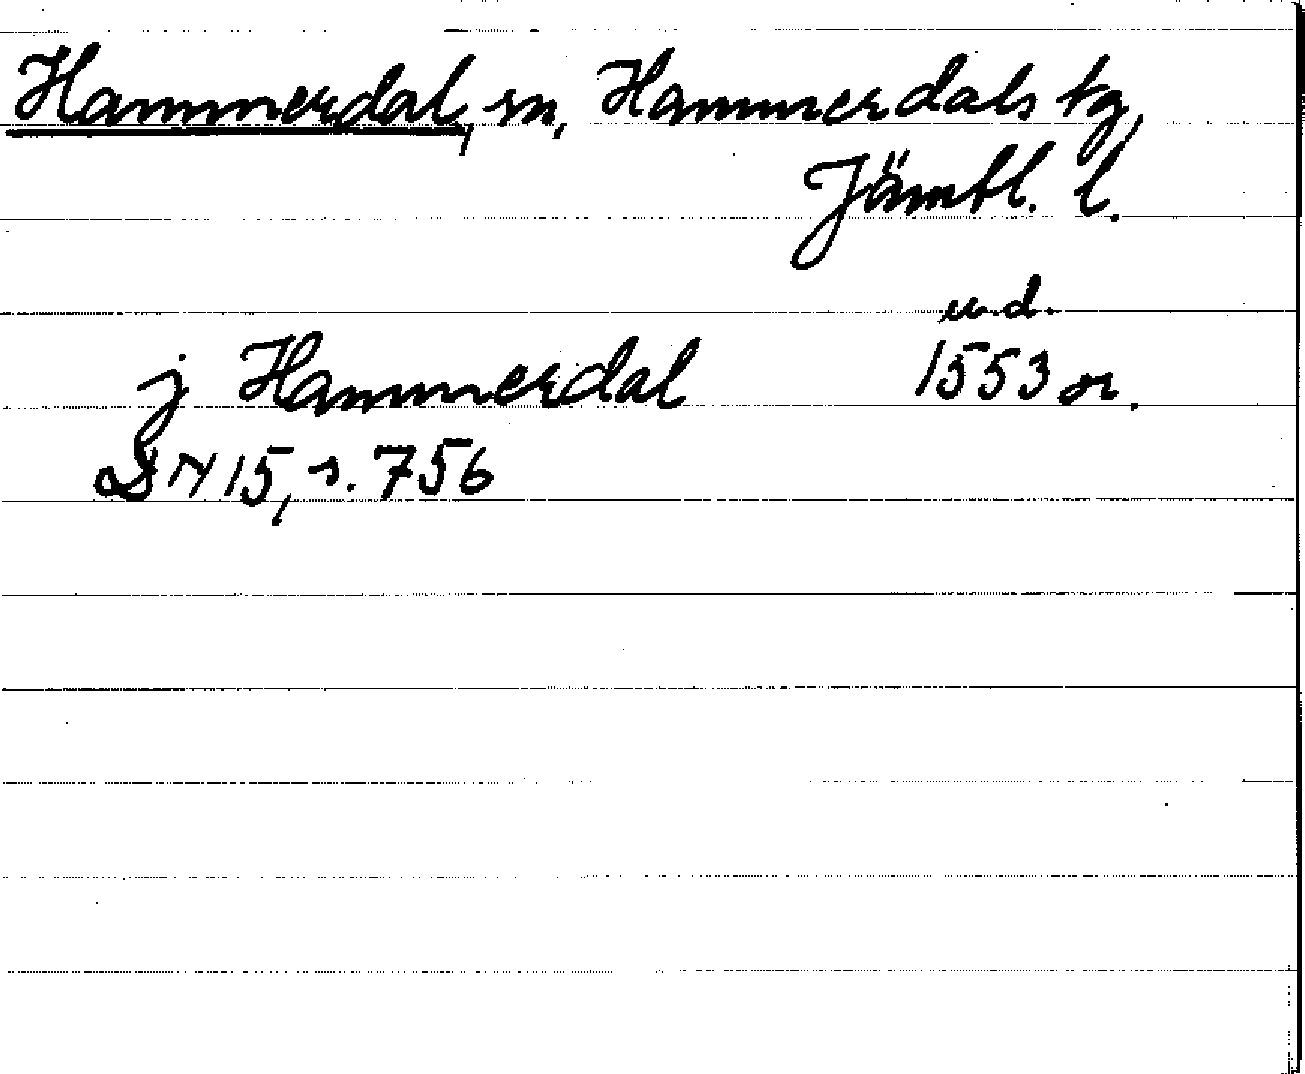 Hammerdal, sn, Hammerdals tg,
Jämtl. l.
u.d.
j Hammerdal 1553 or.
DN 15, s. 756